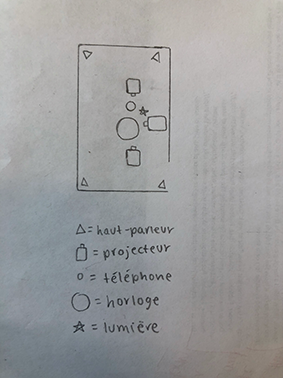 △ = haut-parleur
= projecteur
○ = téléphone
◯ = horloge
☆ = lumière